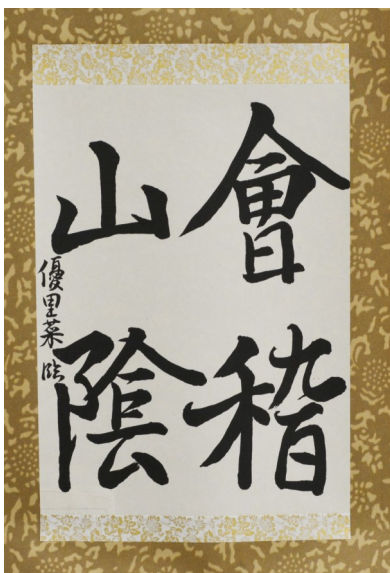 會稽
山陰
優里菜臨